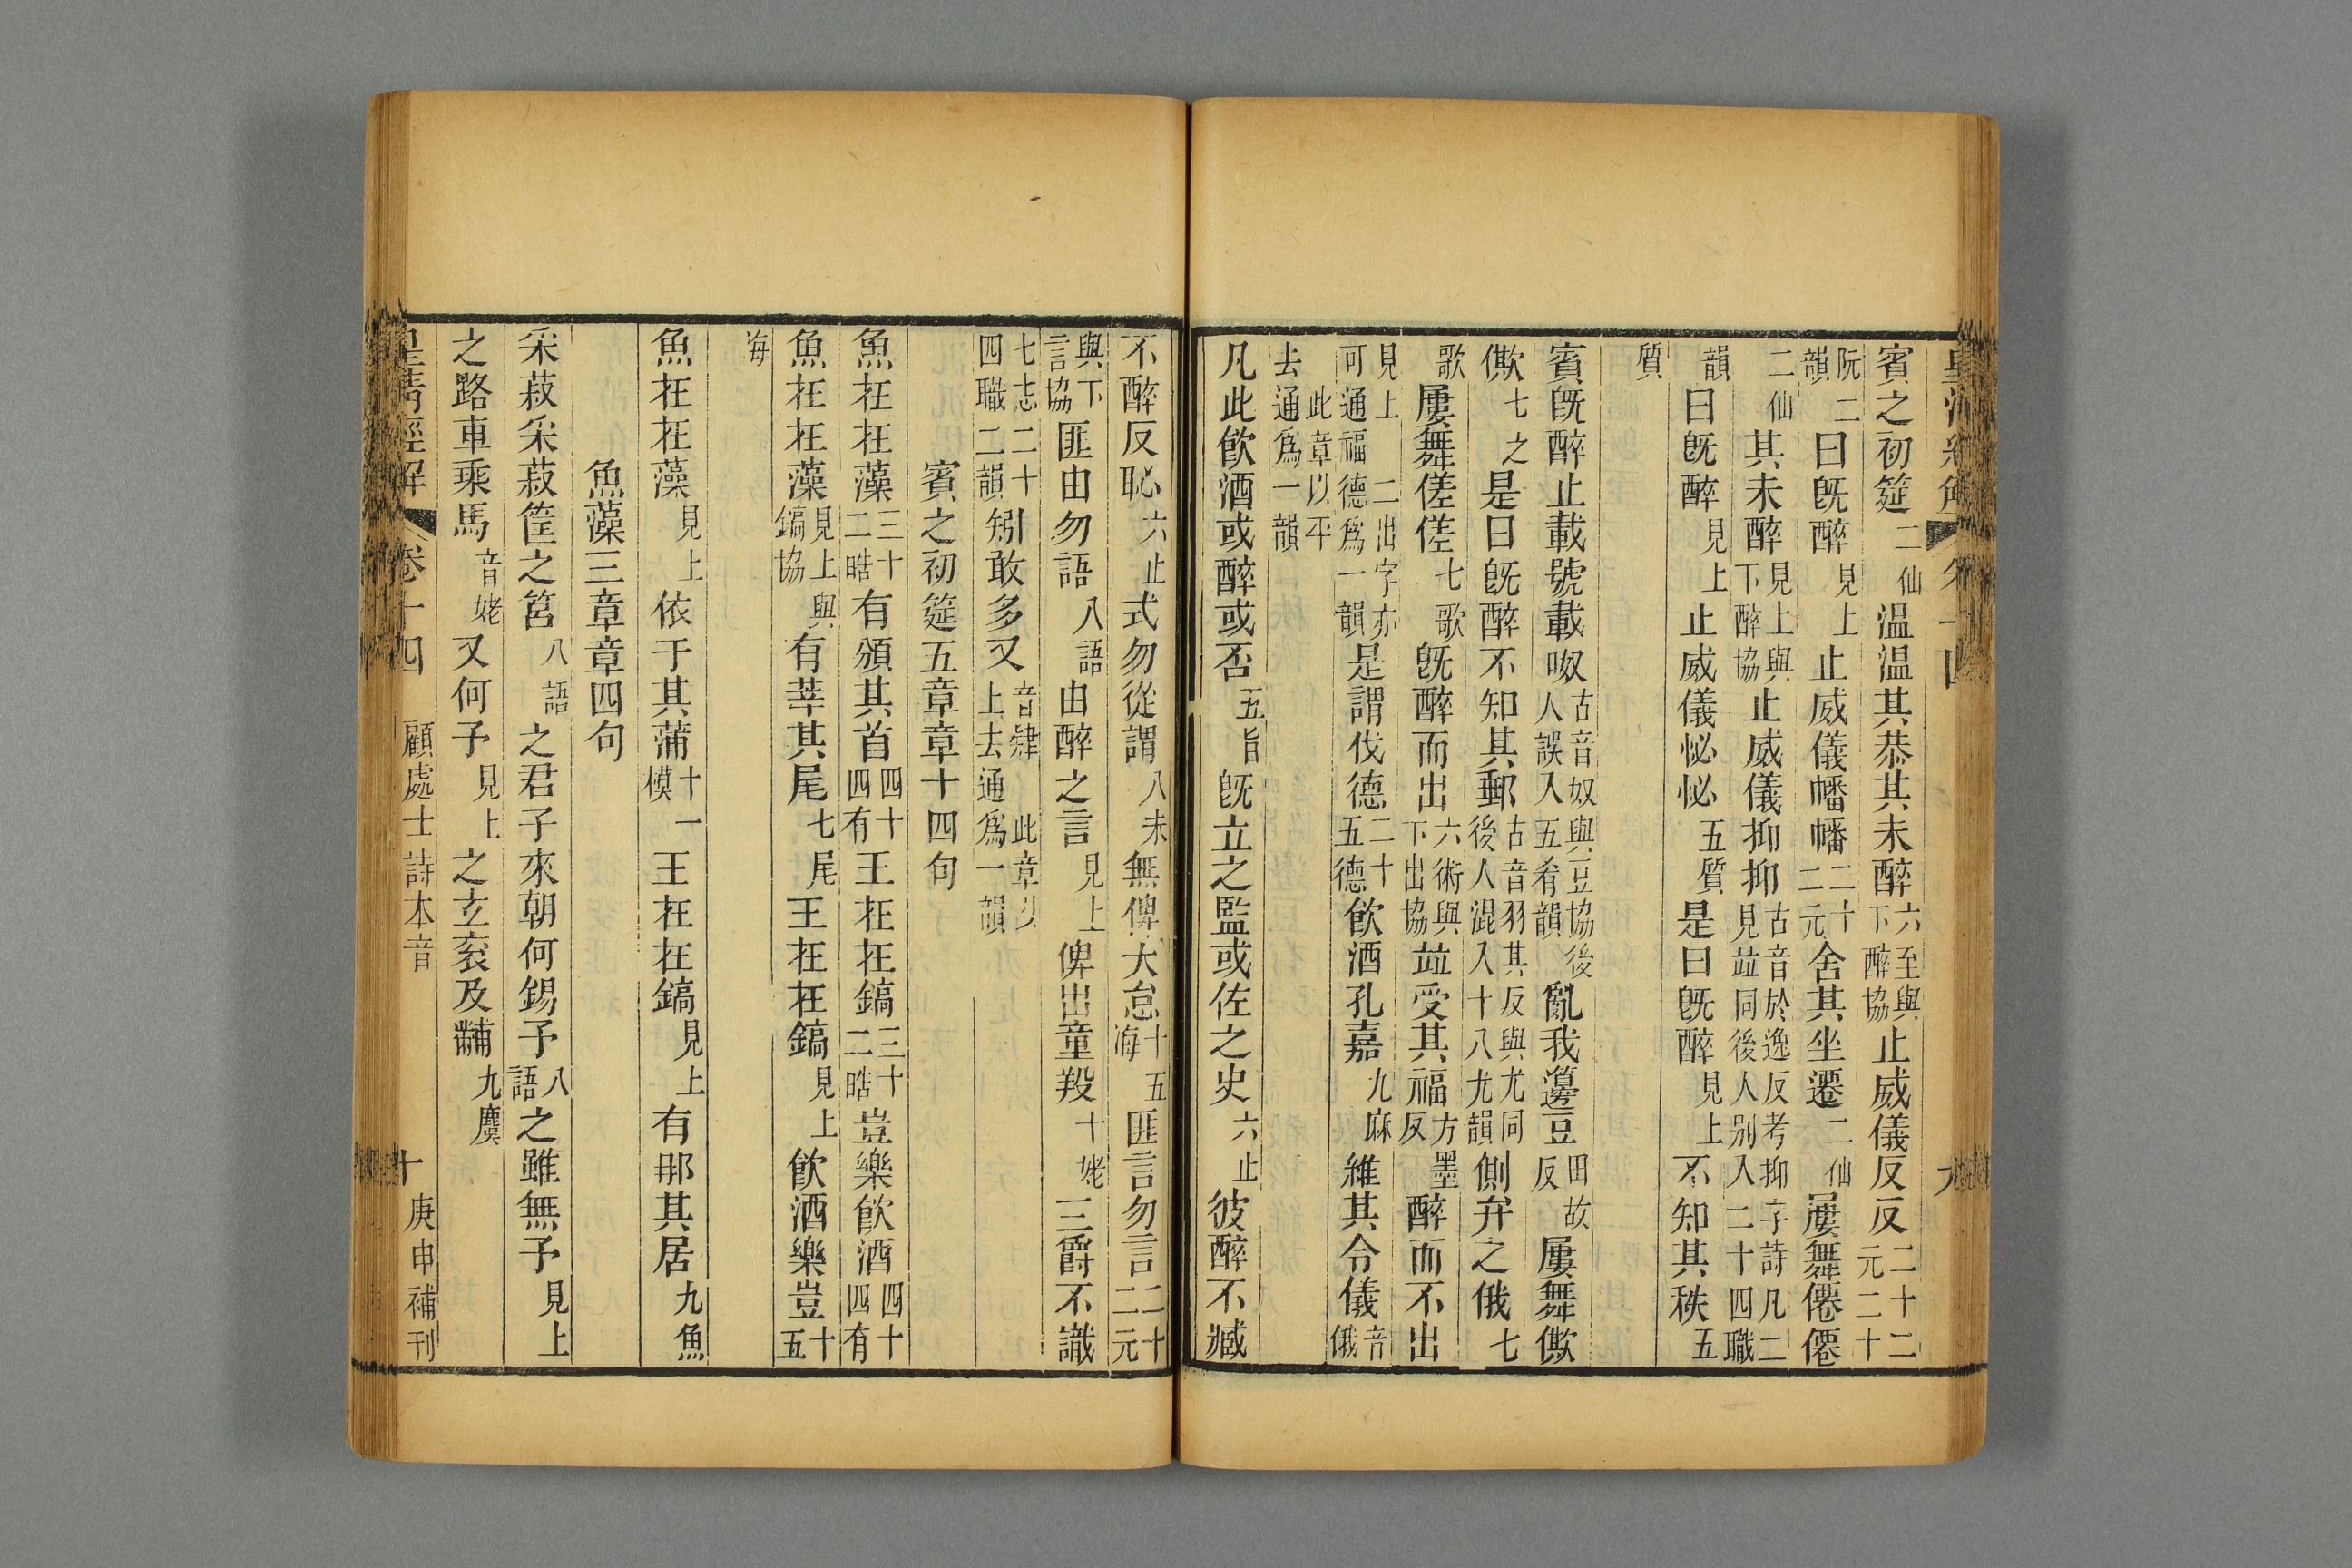 賓之初筵二仙溫溫其恭其未醉六至與下醉協止威儀反反二十二元二十
阮二韻曰旣醉見上止威儀幡幡二十二元舍其坐遷二仙屢舞僊僊
二仙其未醉見上與下醉協止威儀抑抑古音於逸反考抑字詩凡二見竝同後人別入二十四職
韻曰旣醉見上止威儀怭怭五質是曰旣醉見上不知其秩五
質
賓旣醉止載號載呶古音奴與豆協後人誤入五肴韻亂我籩豆田故反屢舞僛
僛七之是曰旣醉不知其郵古音羽其反與尤同後人混入十八尤韻側弁之俄七
歌屢舞傞傞七歌旣醉而出六術與下出協竝受其福方墨反醉而不出
見上二出字亦可通福德爲一韻是謂伐德二十五德飮酒孔嘉九麻維其令儀音俄
此章以平去通爲一韻
凡此飮酒或醉或否五旨旣立之監或佐之史六止彼醉不臧
不醉反恥六止式勿從謂八未無俾大怠十五海匪言勿言二十二元
與下言協匪由勿語八語由醉之言見上俾出童羖十姥三爵不識
七志二十四職二韻矧敢多又音肄此章以上去通爲一韻
賓之初筵五章章十四句
魚在在藻三十二晧有頒其首四十四有王在在鎬三十二晧豈樂飮酒四十四有
魚在在藻見上與鎬協有莘其尾七尾王在在鎬見上飮酒樂豈十五
海
魚在在藻見上依于其蒲十一模王在在鎬見上有那其居九魚
魚藻三章章四句
采菽采菽筐之筥八語之君子來朝何錫予八語之雖無予見上
之路車乘馬音姥又何予見上之玄袞及黼九麌
皇淸經解 卷十四 顧處士詩本音 十 庚申補刊